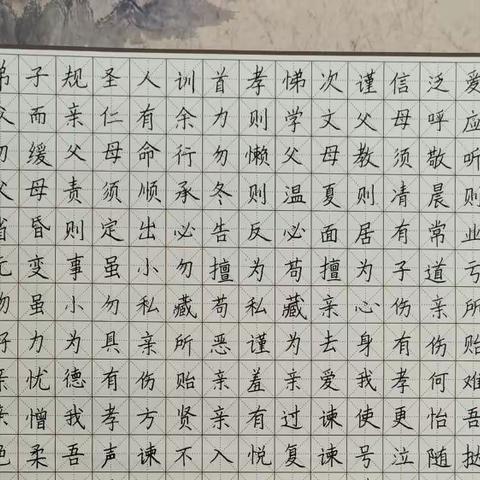 弟子规圣人训首孝悌次谨信泛爱
而亲仁有余力则学文父母呼应
勿缓父母命行勿懒父母教须敬听
父母责须顺承冬则温夏则凊晨则
省昏则定出必告反必面居有常业
无变事虽小勿擅为苟擅为子道亏
物虽小勿私藏苟私藏亲心伤亲所
好力为具亲所恶谨为去身有伤贻
亲忧德有伤贻亲羞亲爱我孝何难
亲憎我孝方贤亲有过谏使更怡吾
色柔吾声谏不入悦复谏号泣随挞